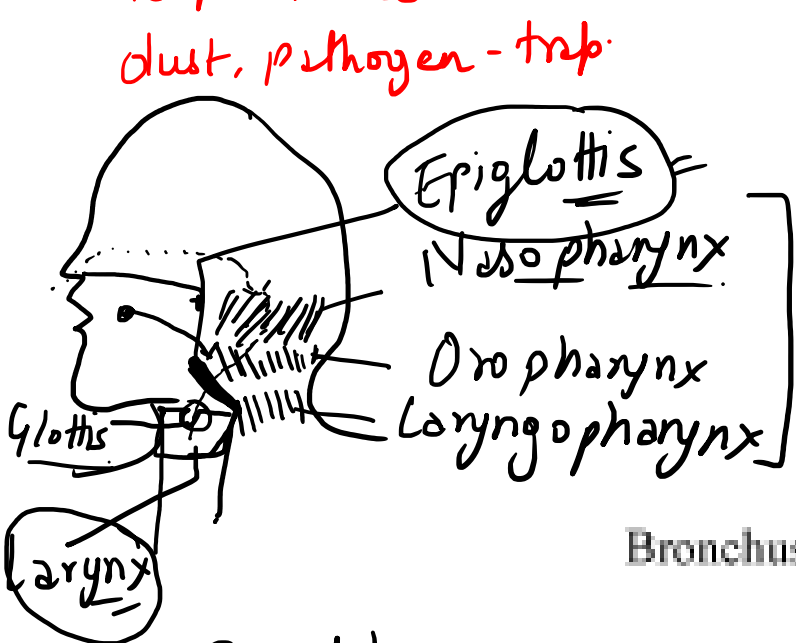 dust, pathogen - trap.
Epiglottis
Nasopharynx
Oropharynx
Laryngopharynx
Glottis
Larynx
Bronchus